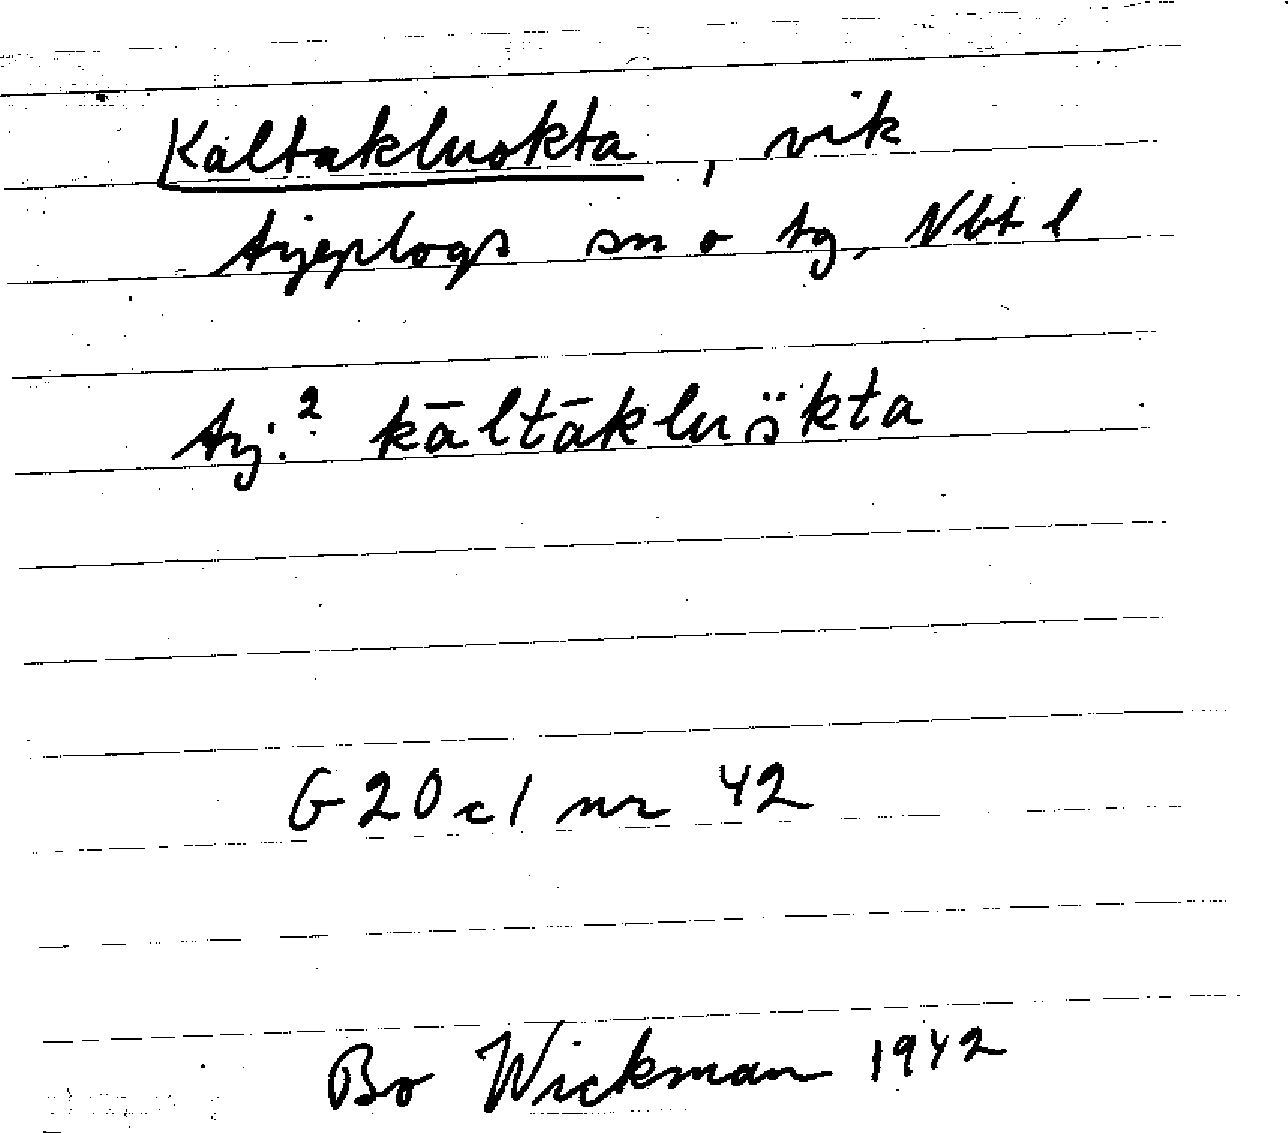 Kaltakluokta, vik
Arjeplogs sn o tg, Nbt l
Arj.² kāltākluökta
G 20 c1 nr 42
Bo Wickman 1942